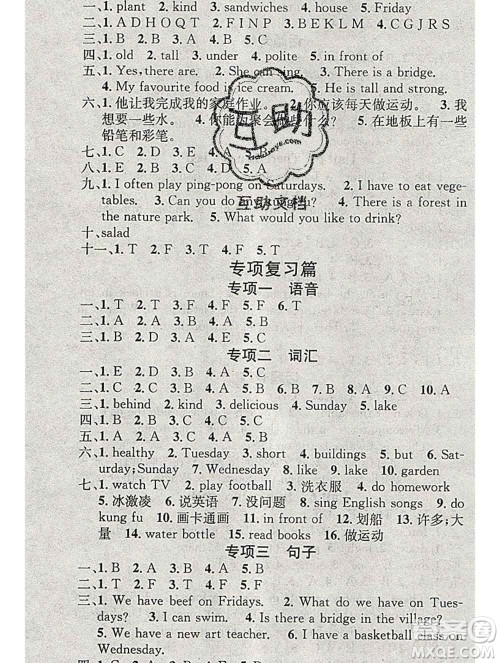 一、1. plant 2. kind 3. sandwiches 4. house 5. Friday
二、1. A D H O Q T 2. B E K L M 3. C G F J R S
四、1. old 2. tall 3. under 4. polite 5. in front of
五、1. Yes, there are. 2. She can sing. 3. There is a bridge.
4. My favourite food is ice cream. 5. He is tall and strong.
六、1. 他让我完成我的家庭作业。 2. 你应该每天做运动。 3. 我
想要一些水。 4. 你能为聚会做些什么? 5. 在地板上有一些
铅笔和彩笔。
七、1. C 2. D 3. E 4. B 5. A 八、1. C 2. B 3. A 4. B
九、1. I often play ping-pong on Saturdays. 2. I have to eat vege-
tables. 3. Can you do any kung fu? 4. There is a forest in
the nature park. 5. What would you like to drink?
十、salad
十一、1. T 2. F 3. T 4. F 5. F
互助
互助文档
专项复习篇
专项一 语音
一、1. T 2. T 3. F 4. F 5. F 6. T
二、1. A 2. A 3. B 4. A 5. B
专项二 词汇
一、1. E 2. D 3. B 4. C 5. A
二、1. C 2. C 3. B 4. A 5. C 6. A 7. B 8. B 9. C 10. A
三、1. behind 2. kind 3. delicious 4. Sunday 5. lake
四、1. B 2. B 3. B 4. C
五、1. A 2. B 3. C 4. B 5. A
六、1. healthy 2. Tuesday 3. short 4. buildings 5. but 6. Sat-
urday/Sunday 7. Wednesday 8. like 9. lake 10. garden
七、1. watch TV 2. play football 3. 洗衣服 4. do homework
5. 冰激凌 6. 说英语 7. 没问题 8. sing English songs 9. do
kung fu 10. 画卡通画 11. in front of 12. 划船 13. 许多;大
量 14. water bottle 15. read books 16. 做运动
专项三 句子
一、1. D 2. B 3. A 4. C 5. E 二、1. B 2. A 3. B 4. B 5. A
三、1. We have beef on Fridays. 2. What do we have on Tues-
days? 3. I can swim. 4. Is there a bridge in the village?
5. We have a new art teacher. 6. I have a basketball class on
Wednesday.
MXQE.COM